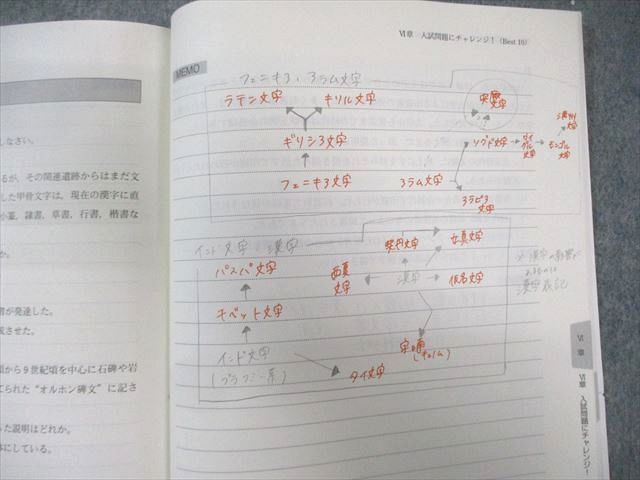 VI章 入試問題にチャレンジ！(Best 10)
MEMO
フェニキア、アラム文字
ラテン文字
キリル文字
突厥
文字
ギリシア文字
ソグド文字
ウイ
グル
文字
モンゴル
文字
満州
文字
フェニキア文字
アラム文字
アラビア
文字
インド文字 漢字
契丹文字
女真文字
パスパ文字
西夏
文字
漢字
仮名文字
チベット文字
漢字表記
インド文字
(ブラフミー系)
字喃
(チュノム)
タイ文字
しなさい。
るが、その関連遺跡からはまだ文
した甲骨文字は、現在の漢字に直
小篆、隷書、草書、行書、楷書な
か。
書が発達した。
成させた。
頃から9世紀頃を中心に石碑や岩
てられた“オルホン碑文”に記さ
った説明はどれか。
本にしている。
VI
章
VI章 入試問題にチャレンジ！